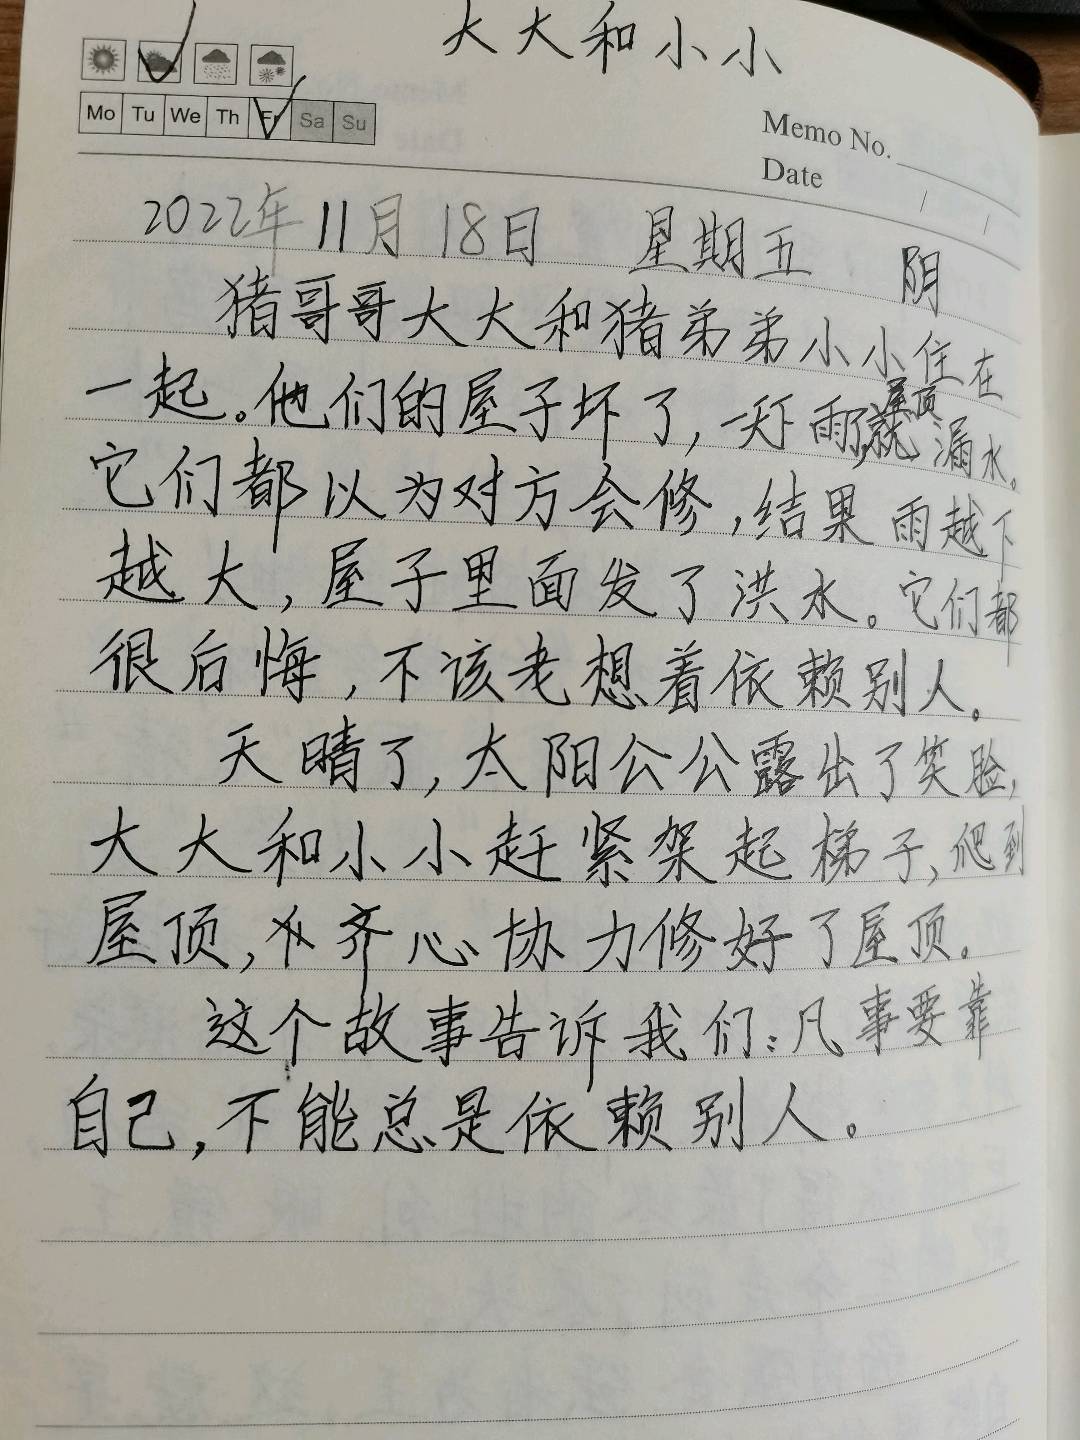 大大和小小
Mo Tu We Th Fr Sa Su
Memo No.
Date / /
2022年11月18日 星期五 阴
猪哥哥大大和猪弟弟小小住在
一起。他们的屋子坏了,一天下雨了,屋顶就漏水。
它们都以为对方会修,结果雨越下
越大,屋子里面发了洪水。它们都
很后悔,不该老想着依赖别人。
天晴了,太阳公公露出了笑脸,
大大和小小赶紧架起梯子,爬到
屋顶,齐心协力修好了屋顶。
这个故事告诉我们:凡事要靠
自己,不能总是依赖别人。